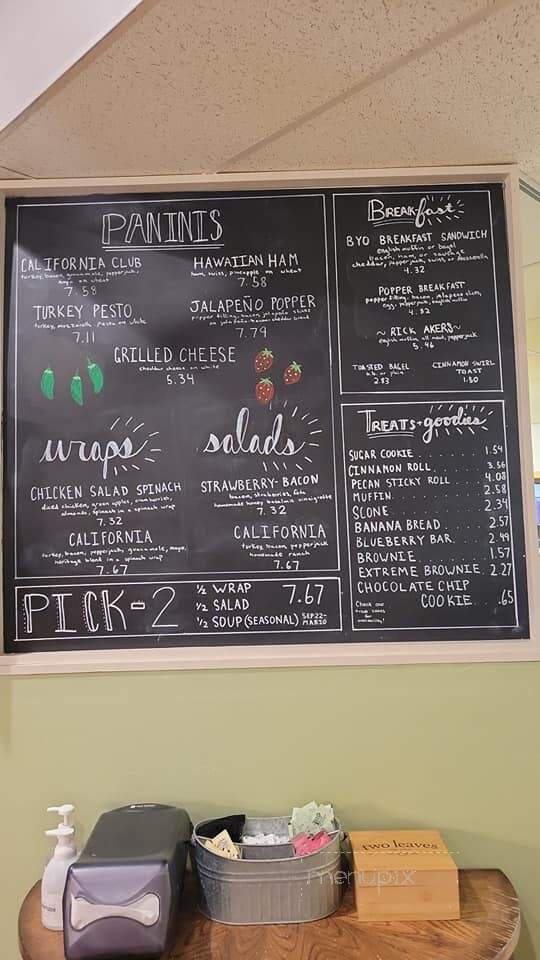 PANINIS
CALIFORNIA CLUB
turkey, bacon, guacamole, pepperjack,
mayo on wheat
7.58
HAWAIIAN HAM
ham, swiss, pineapple on wheat
7.58
TURKEY PESTO
turkey, mozzarella, pesto on white
7.11
JALAPEÑO POPPER
popper filling, bacon, jalapeño slices
on jalapeño-bacon-cheddar bread
7.79
GRILLED CHEESE
cheddar cheese on white
5.34
wraps
CHICKEN SALAD SPINACH
diced chicken, green apples, cranberries,
almonds, spinach in a spinach wrap
7.32
CALIFORNIA
turkey, bacon, pepperjack, guacamole, mayo,
heritage blend in a spinach wrap
7.67
salads
STRAWBERRY-BACON
bacon, strawberries, feta
homemade honey balsamic vinaigrette
7.32
CALIFORNIA
turkey, bacon, pepperjack
homemade ranch
7.67
PICK-2
½ WRAP
½ SALAD
½ SOUP (SEASONAL) SEP 22-
MAR 20
7.67
BREAKfast
BYO BREAKFAST SANDWICH
english muffin or bagel
bacon, ham, or sausage
cheddar, pepperjack, swiss or mozzarella
4.32
POPPER BREAKFAST
popper filling, bacon, jalapeno slices,
egg, pepperjack, english muffin
4.82
~ RICK AKERS ~
english muffin all meat, pepperjack
5.46
TOASTED BAGEL
2.83
CINNAMON SWIRL
TOAST
1.50
TREATS + goodies
SUGAR COOKIE . . . . . . . 1.54
CINNAMON ROLL . . . . . . 3.56
PECAN STICKY ROLL 4.08
MUFFIN . . . . . . . . . 2.58
SCONE . . . . . . . . . 2.34
BANANA BREAD . . . . . 2.57
BLUEBERRY BAR . . . . . 2.49
BROWNIE . . . . . . . . 1.57
EXTREME BROWNIE . 2.27
CHOCOLATE CHIP
COOKIE . . . .65
Check our
for
availability!
two leaves
menupix